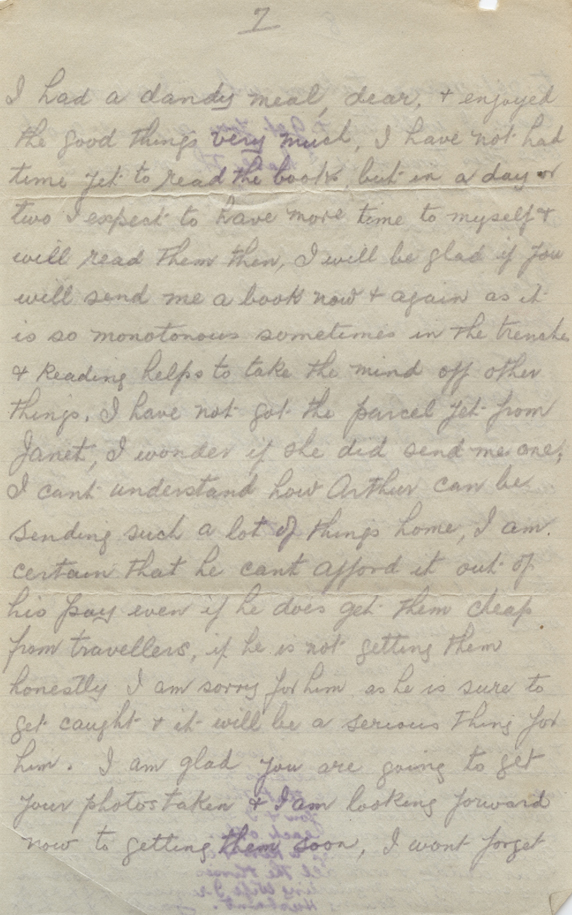 7
I had a dandy meal, dear, + enjoyed
the good things very much, I have not had
time yet to read the books, but in a day or
two I expect to have more time to myself +
will read them then, I will be glad if you
will send me a book now + again as it
is so monotonous sometimes in the trenches
+ Reading helps to take the mind off other
things. I have not got the parcel yet from
Janet, I wonder if she did send me one,
I cant understand how Arthur can be
sending such a lot of things home, I am
certain that he cant afford it out of
his pay even if he does get them cheap
from travellers, if he is not getting them
honestly I am sorry for him as he is sure to
get caught + it will be a serious thing for
him. I am glad you are going to get
your photos taken + I am looking forward
now to getting them soon, I wont forget